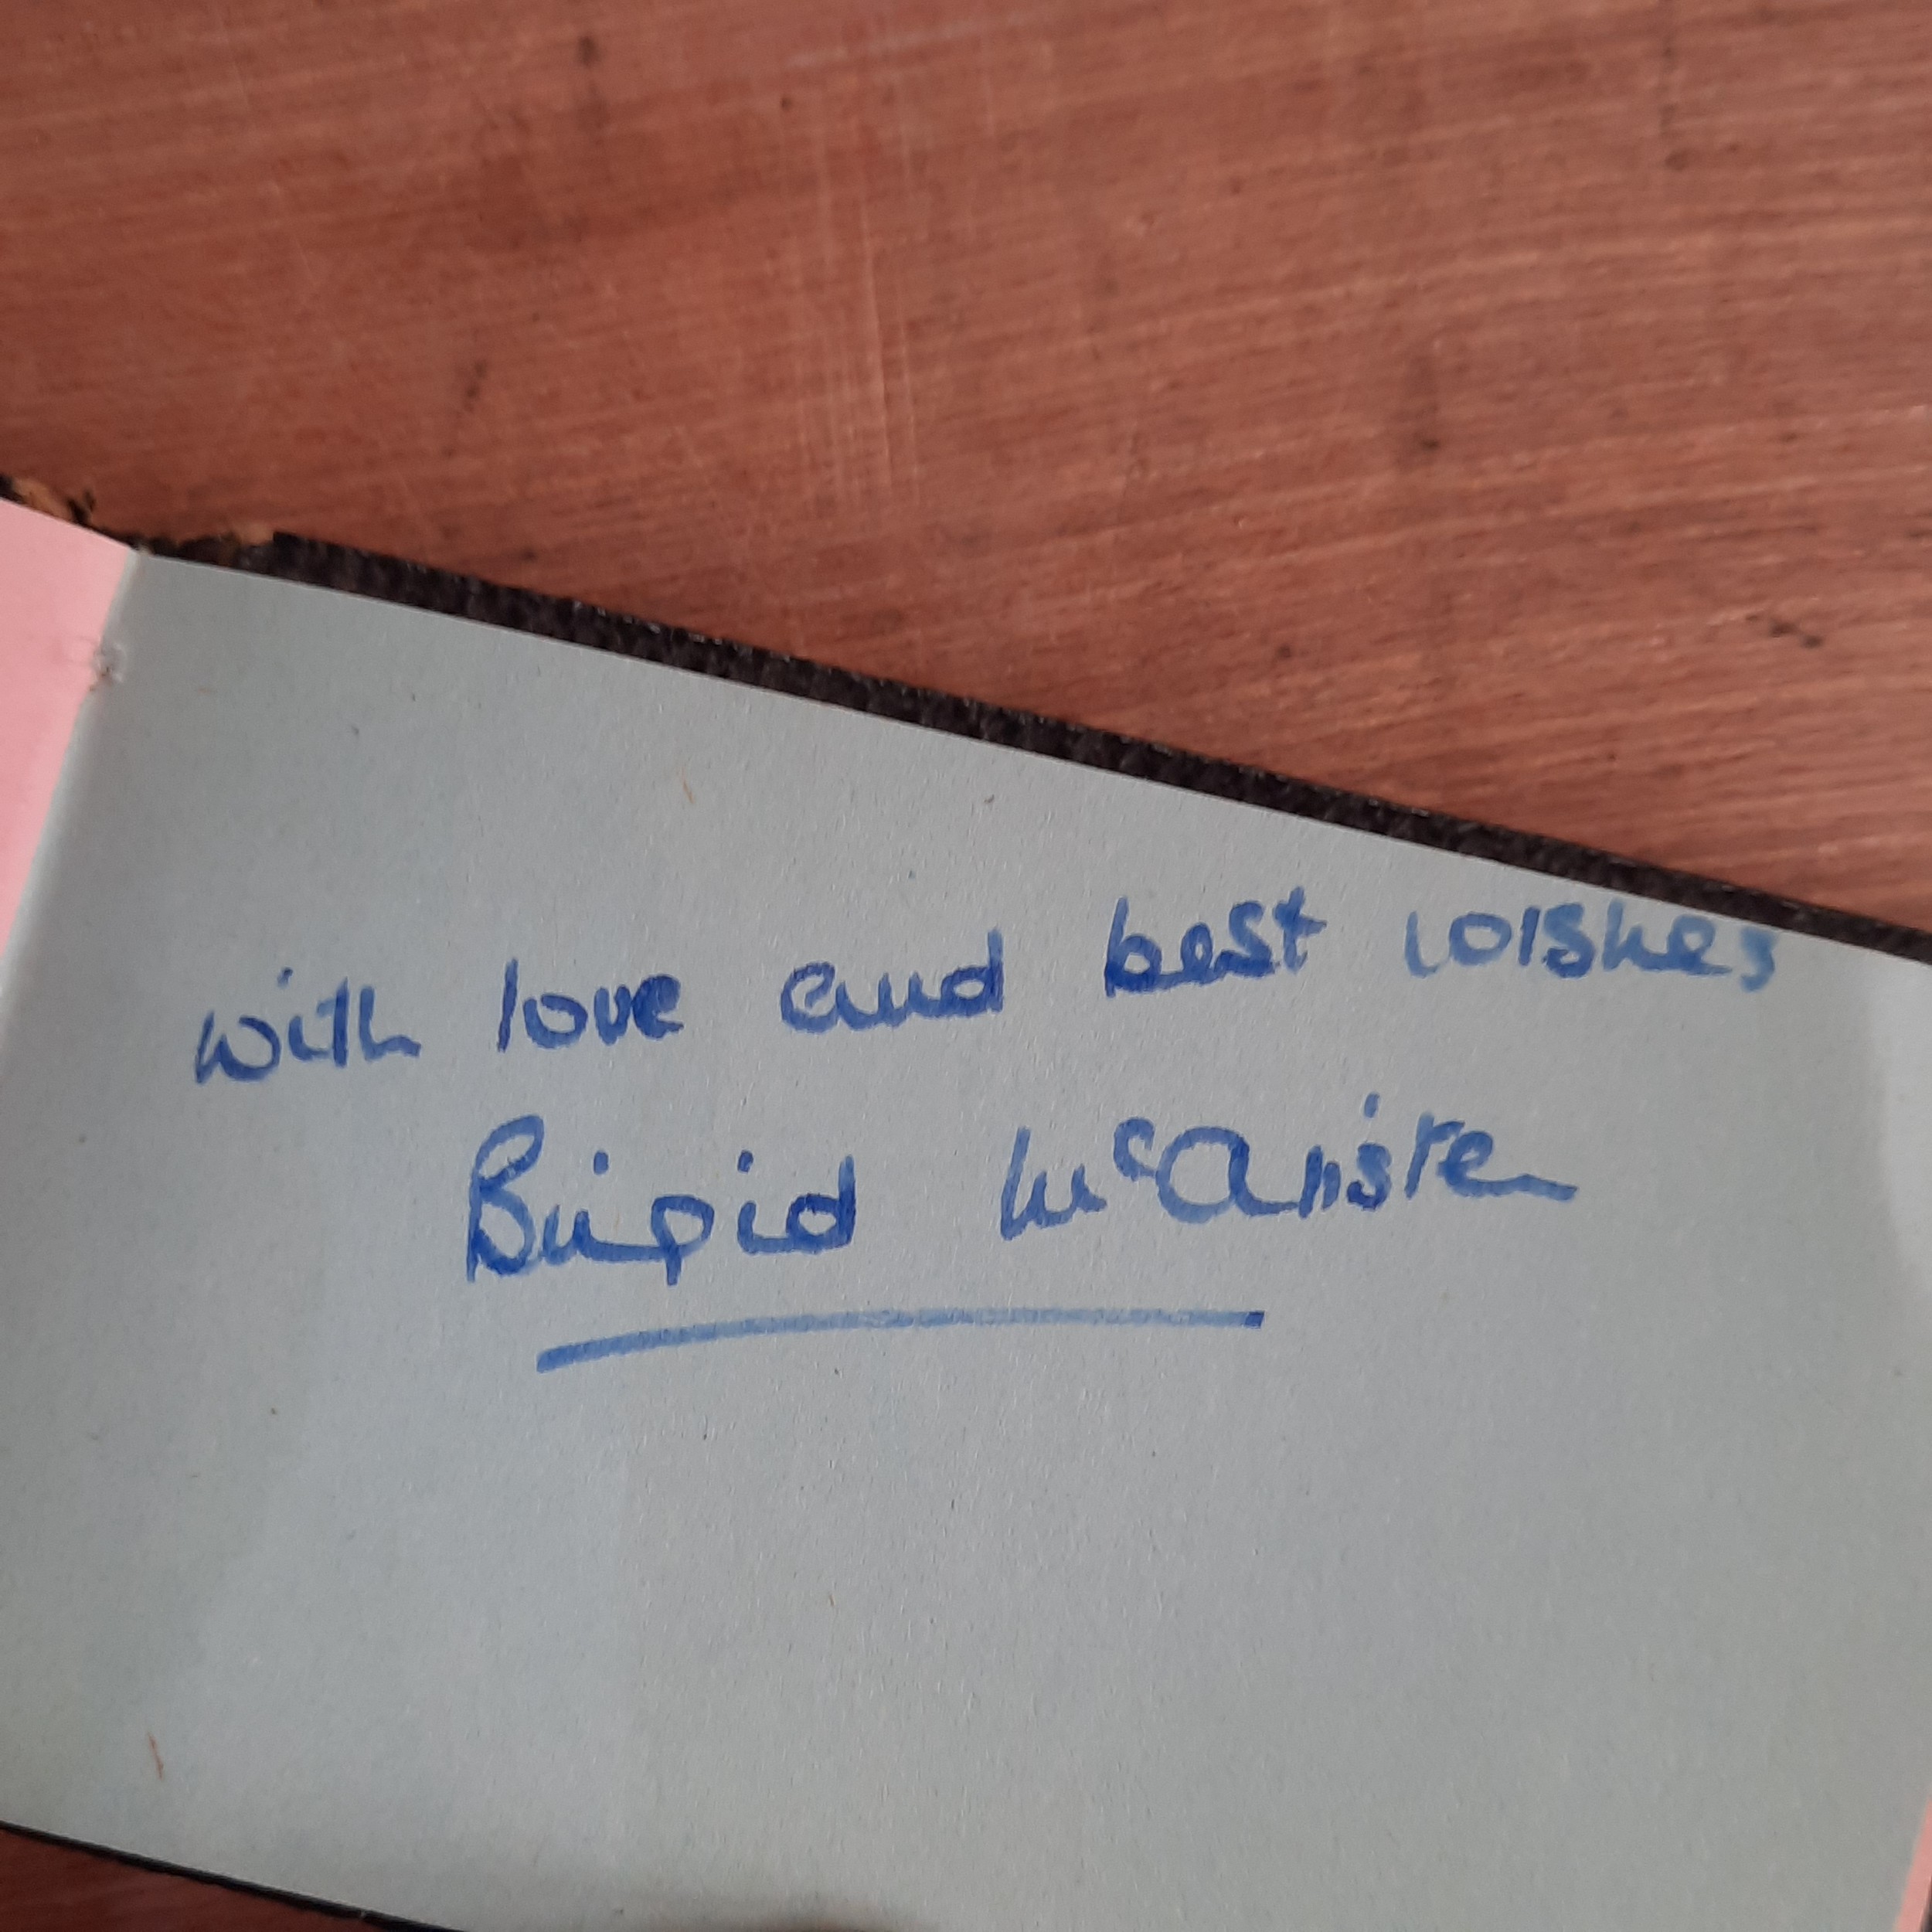 with love and best wishes
Brigid McAlister